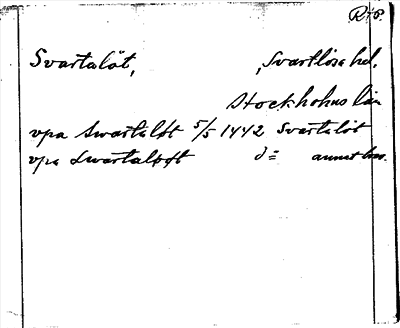 Svartalöt, Svartlösa hd.
Stockholms län
vpa Swartaløt 5/5 1442 Svartalöt
vpa Swartaløøt d=